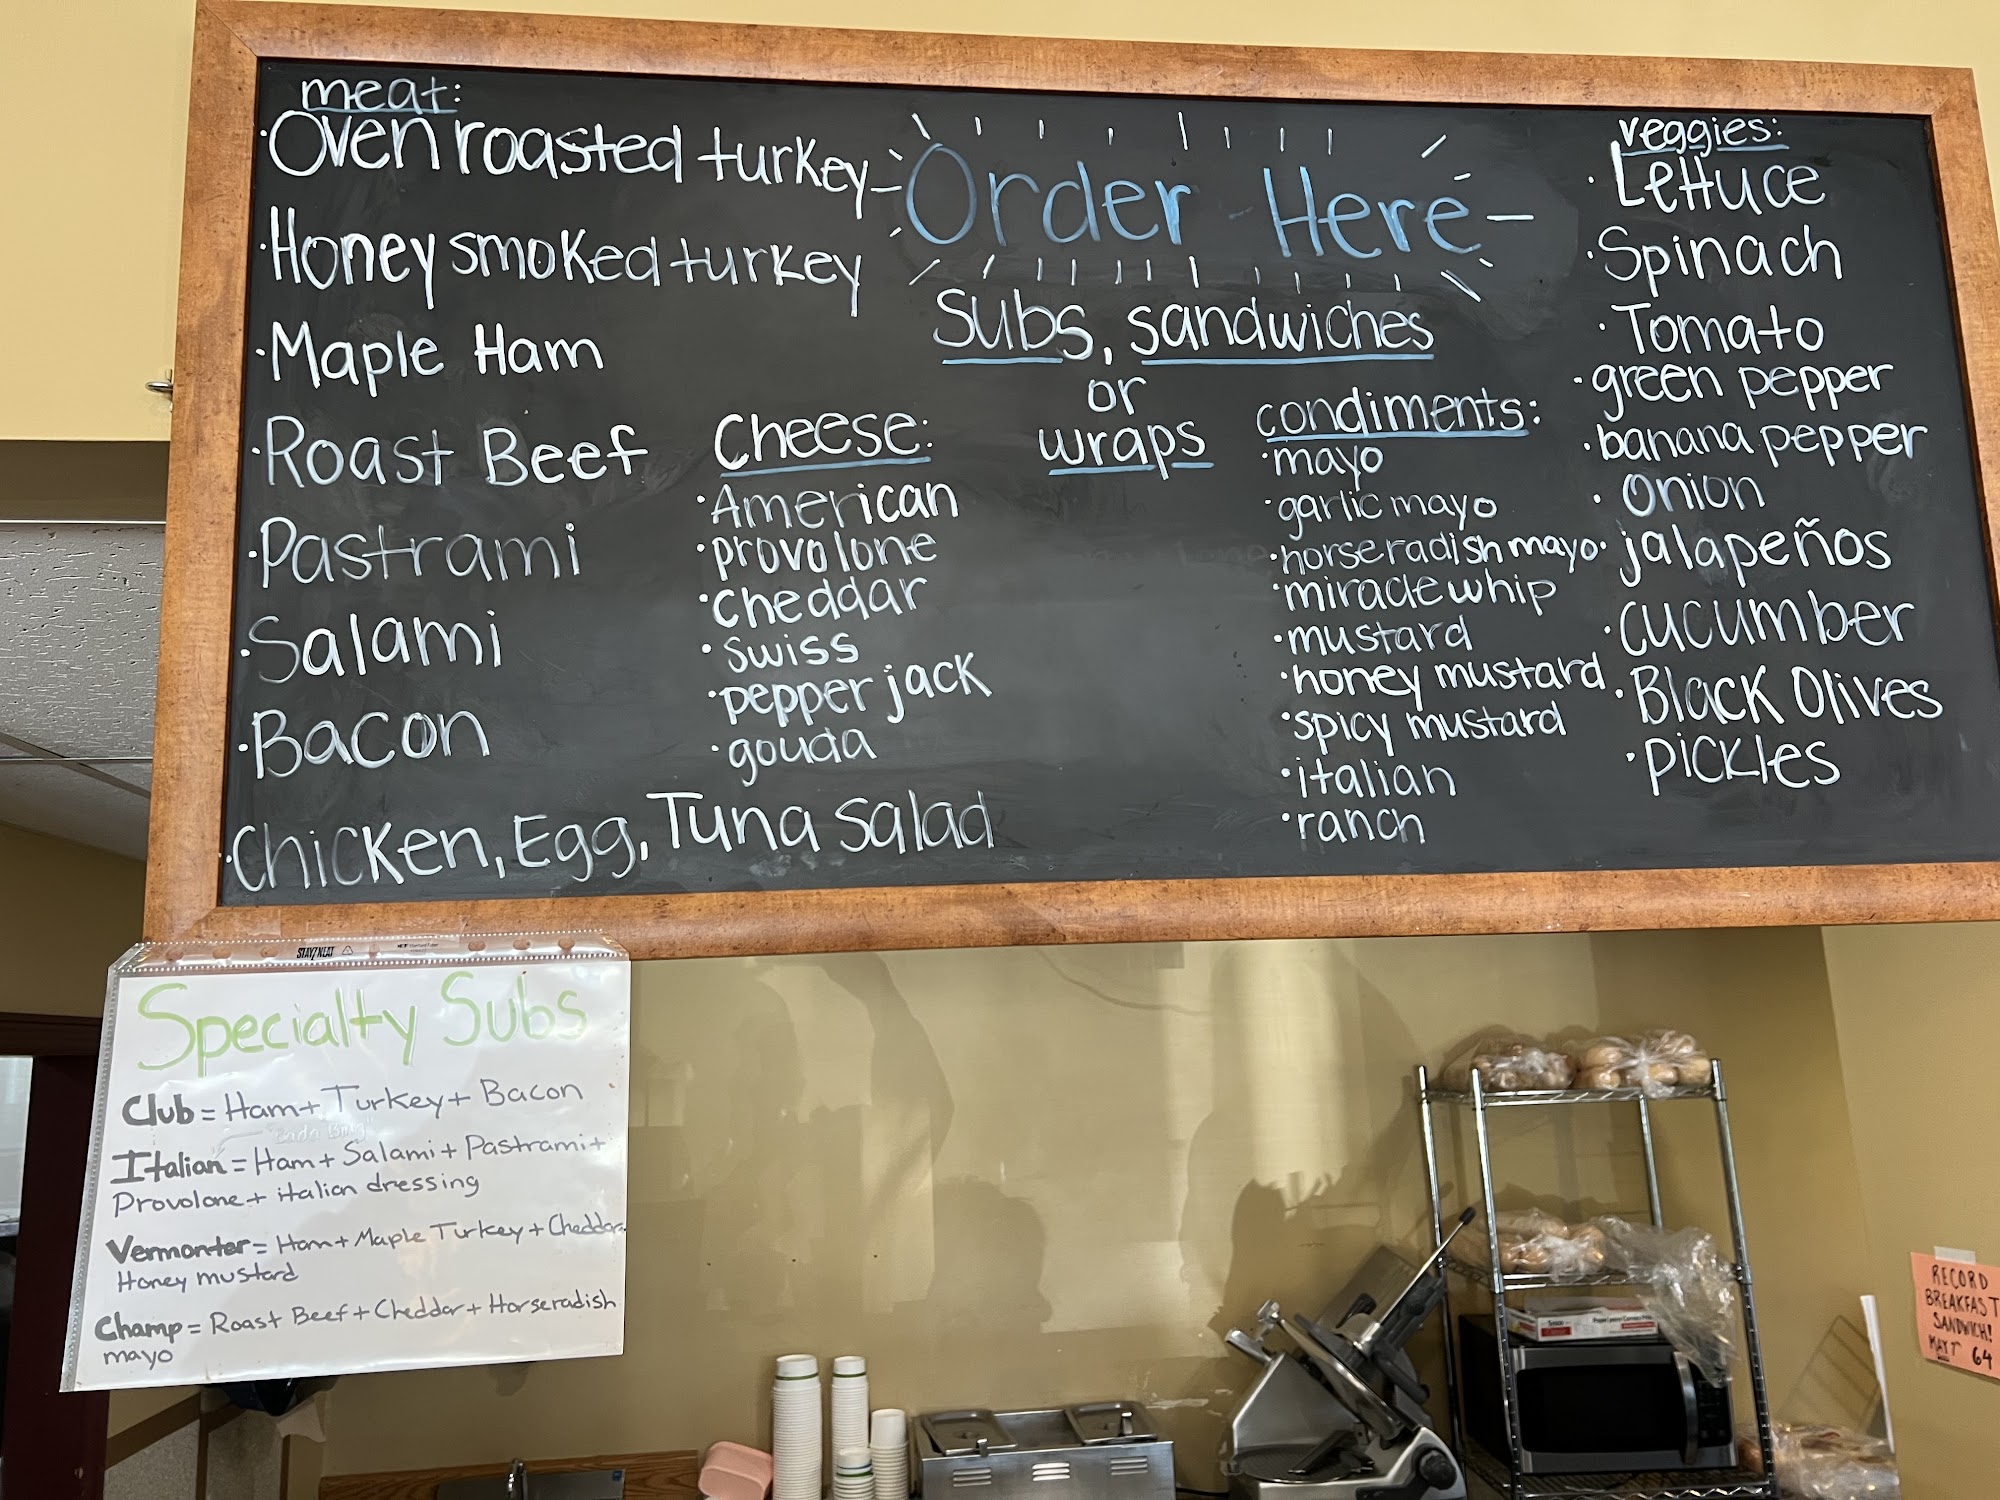 meat:
· Oven roasted turkey
· Honey smoked turkey
· Maple Ham
· Roast Beef
· Pastrami
· Salami
· Bacon
· Chicken, Egg, Tuna Salad
Order Here
Subs, sandwiches
or
wraps
Cheese:
· American
· provolone
· cheddar
· swiss
· pepper jack
· gouda
condiments:
· mayo
· garlic mayo
· horseradish mayo
· miracle whip
· mustard
· honey mustard
· spicy mustard
· italian
· ranch
veggies:
· Lettuce
· Spinach
· Tomato
· green pepper
· banana pepper
· onion
· jalapeños
· cucumber
· Black Olives
· pickles
Specialty Subs
Club = Ham + Turkey + Bacon
"Bada Bing"
Italian = Ham + Salami + Pastrami +
Provolone + italian dressing
Vermonter = Ham + Maple Turkey + Cheddar
Honey mustard
Champ = Roast Beef + Cheddar + Horseradish
mayo
RECORD
BREAKFAST
SANDWICH!
64